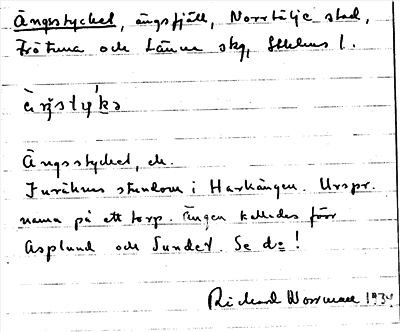 Ängsstycket, ängsfjäll, Norrtälje stad,
Frötuna och Länna skg, Sthlms l.
Ängsstycket, de.
stundom i Harkängen. Urspr.
namn på ett torp. Ängen kallades förr
Asplund och Sundet. Se de!
Rickard 1934